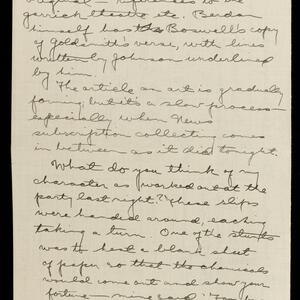 original — references to the
Garrick theatre, etc. Berdan
himself has the Boswell's copy
of Goldsmith's verse, with lines
written by Johnson underlined
by him.
The article on art is gradually
forming, but it's a slow process —
especially when News
subscription collecting comes
in between as it did tonight.
What do you think of my
character as worked out at the
party last night? These slips
were handed around, each
taking a turn. One of the stunts
was to heat a blank sheet
of paper so that the chemicals
would come out and show your
fortune — mine said